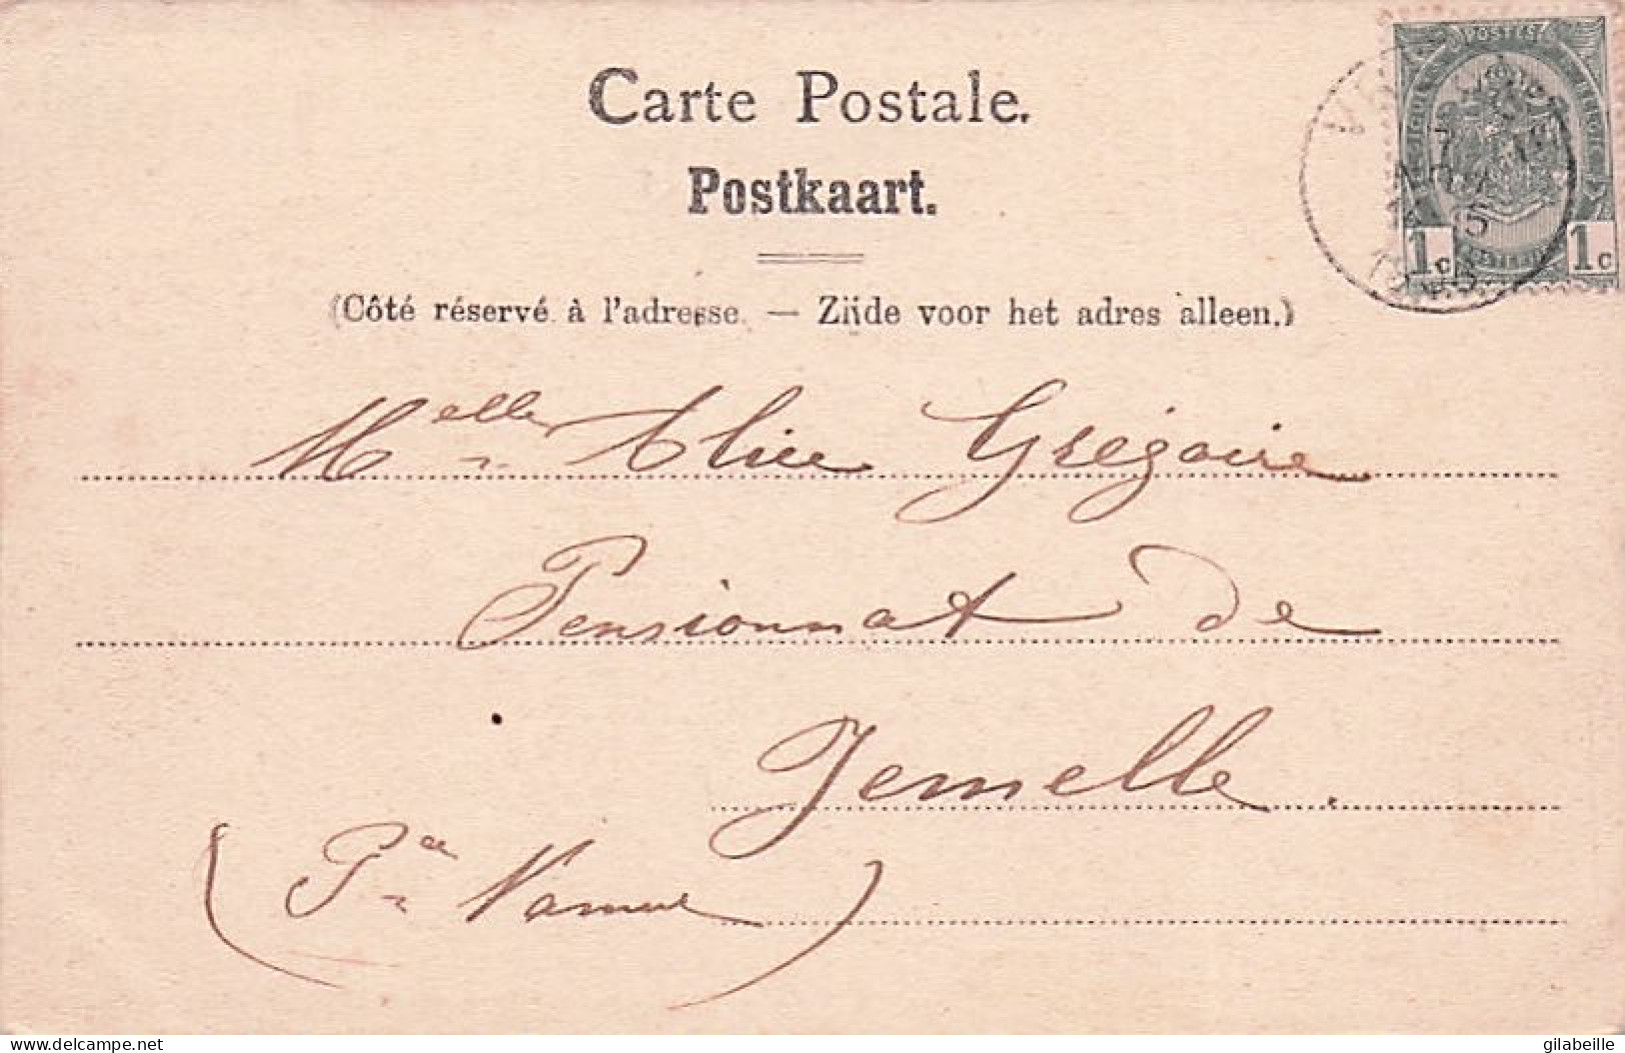 Carte Postale.
Postkaart.
(Côté réservé à l'adresse. — Zijde voor het adres alleen.)
POSTES
1c 1c
Melle Alice Grégoire
Pensionnat de
Jemelle.
(Pce Namur)
delcampe.net
gilabeille